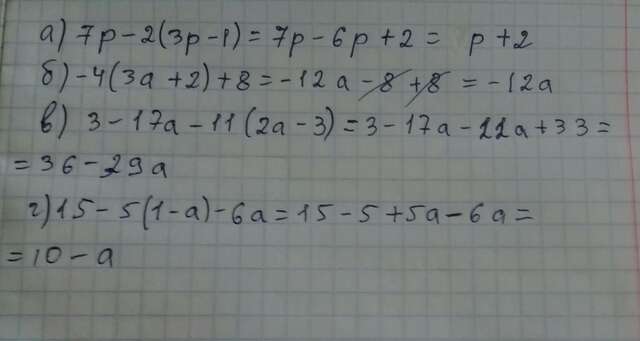 а) 7p-2(3p-1)=7p-6p+2= p+2
б) -4(3a+2)+8=-12a-8+8=-12a
в) 3-17a-11(2a-3)=3-17a-22a+33=
=36-29a
г) 15-5(1-a)-6a=15-5+5a-6a=
=10-a